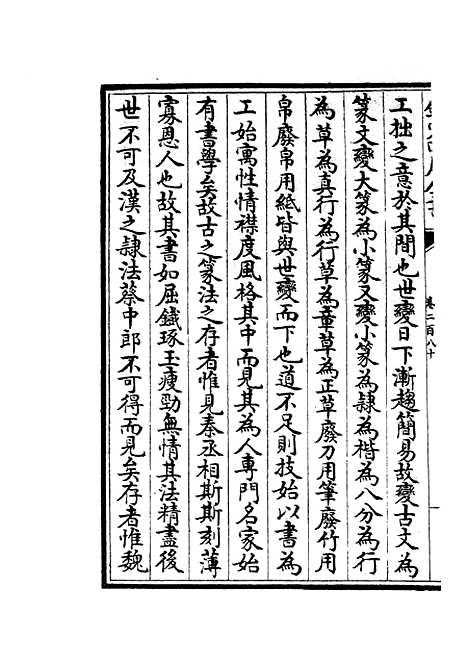 卷二百八十
工拙之意於其間也世變日下漸趨簡易故變古文為
篆文變大篆為小篆又變小篆為隸為楷為八分為行
為草為真行為行草為章草為正草廢刀用筆廢竹用
帛廢帛用紙皆與世變而下也道不足則技始以書為
工始寓性情襟度風格其中而見其為人專門名家始
有書學矣故古之篆法之存者惟見秦丞相斯斯刻薄
寡恩人也故其書如屈鐵琢玉瘦勁無情其法精盡後
世不可及漢之隸法蔡中郎不可得而見矣存者惟魏